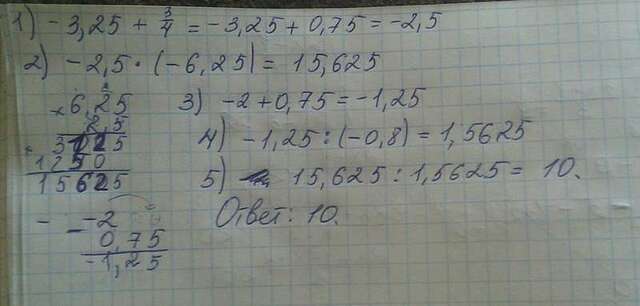 1) -3,25 + 3/4 = -3,25 + 0,75 = -2,5
2) -2,5 · (-6,25) = 15,625
× 6,25
2,5
3125
1250
15625
3) -2 + 0,75 = -1,25
4) -1,25 : (-0,8) = 1,5625
5) 15,625 : 1,5625 = 10.
- -2
0,75
-1,25
Ответ: 10.